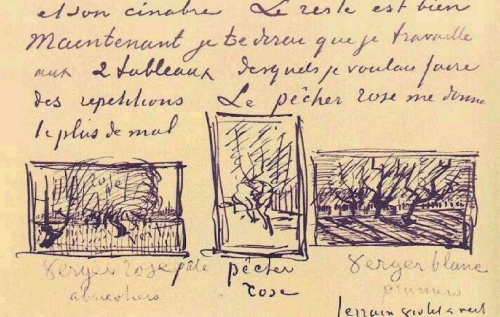 et son cinabre Le reste est bien
Maintenant je te dirai que je travaille
aux 2 tableaux desquels je voulais faire
des repetitions Le pêcher rose me donne
le plus de mal
rose
verger rose pâle
abricotiers
pêcher
rose
verger blanc
pruniers
terrain violet & vert